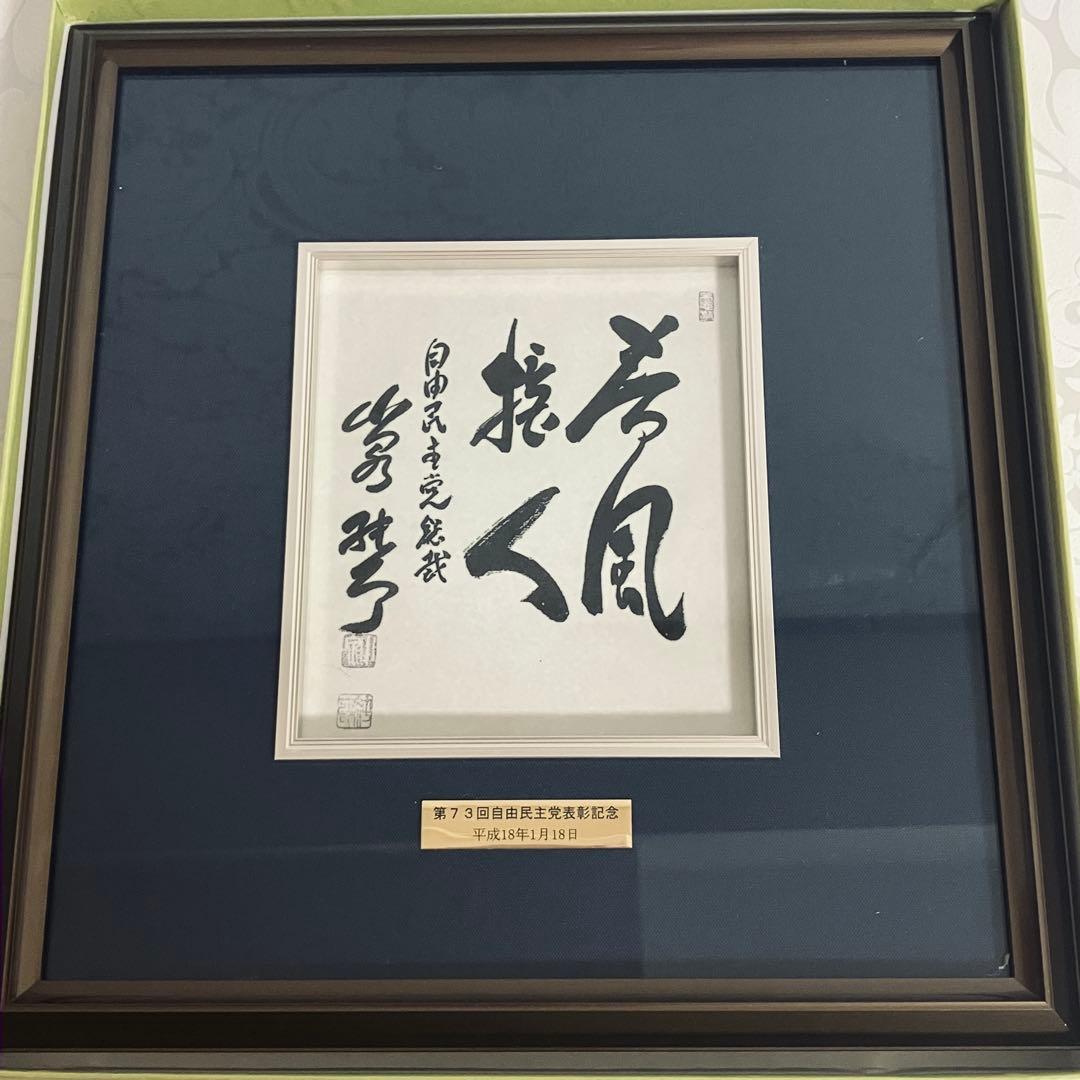 春風
接人
自由民主党総裁
小泉純一郎
第７３回自由民主党表彰記念
平成18年1月18日